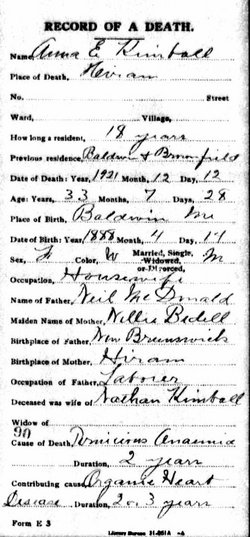 RECORD OF A DEATH.
Name, Anna E Kimball
Place of Death, Hiram
No. Street
Ward, Village,
How long a resident, 18 years
Previous residence, Baldwin & Brownfield
Date of Death: Year, 1921 Month, 12 Day, 12
Age: Years, 33 Months, 7 Days, 28
Place of Birth, Baldwin Me
Date of Birth: Year, 1888 Month, 4 Day, 14
Sex, F Color, W Married, Single, Widowed, or Divorced, M
Occupation, Housewife
Name of Father, Neil McDonald
Maiden Name of Mother, Nellie Bedell
Birthplace of Father, New Brunswick
Birthplace of Mother, Hiram
Occupation of Father, Laborer
Deceased was wife of Nathan Kimball
Widow of
Cause of Death, Pernicious Anaemia
Duration, 2 years
Contributing cause, Organic Heart
Disease Duration, 2 or 3 years
Form E 3 Library Bureau